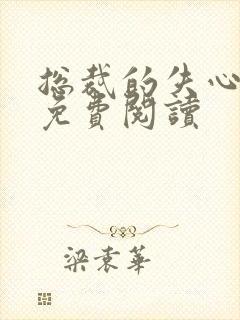 总裁的失心
免費閱讀
梁袁華